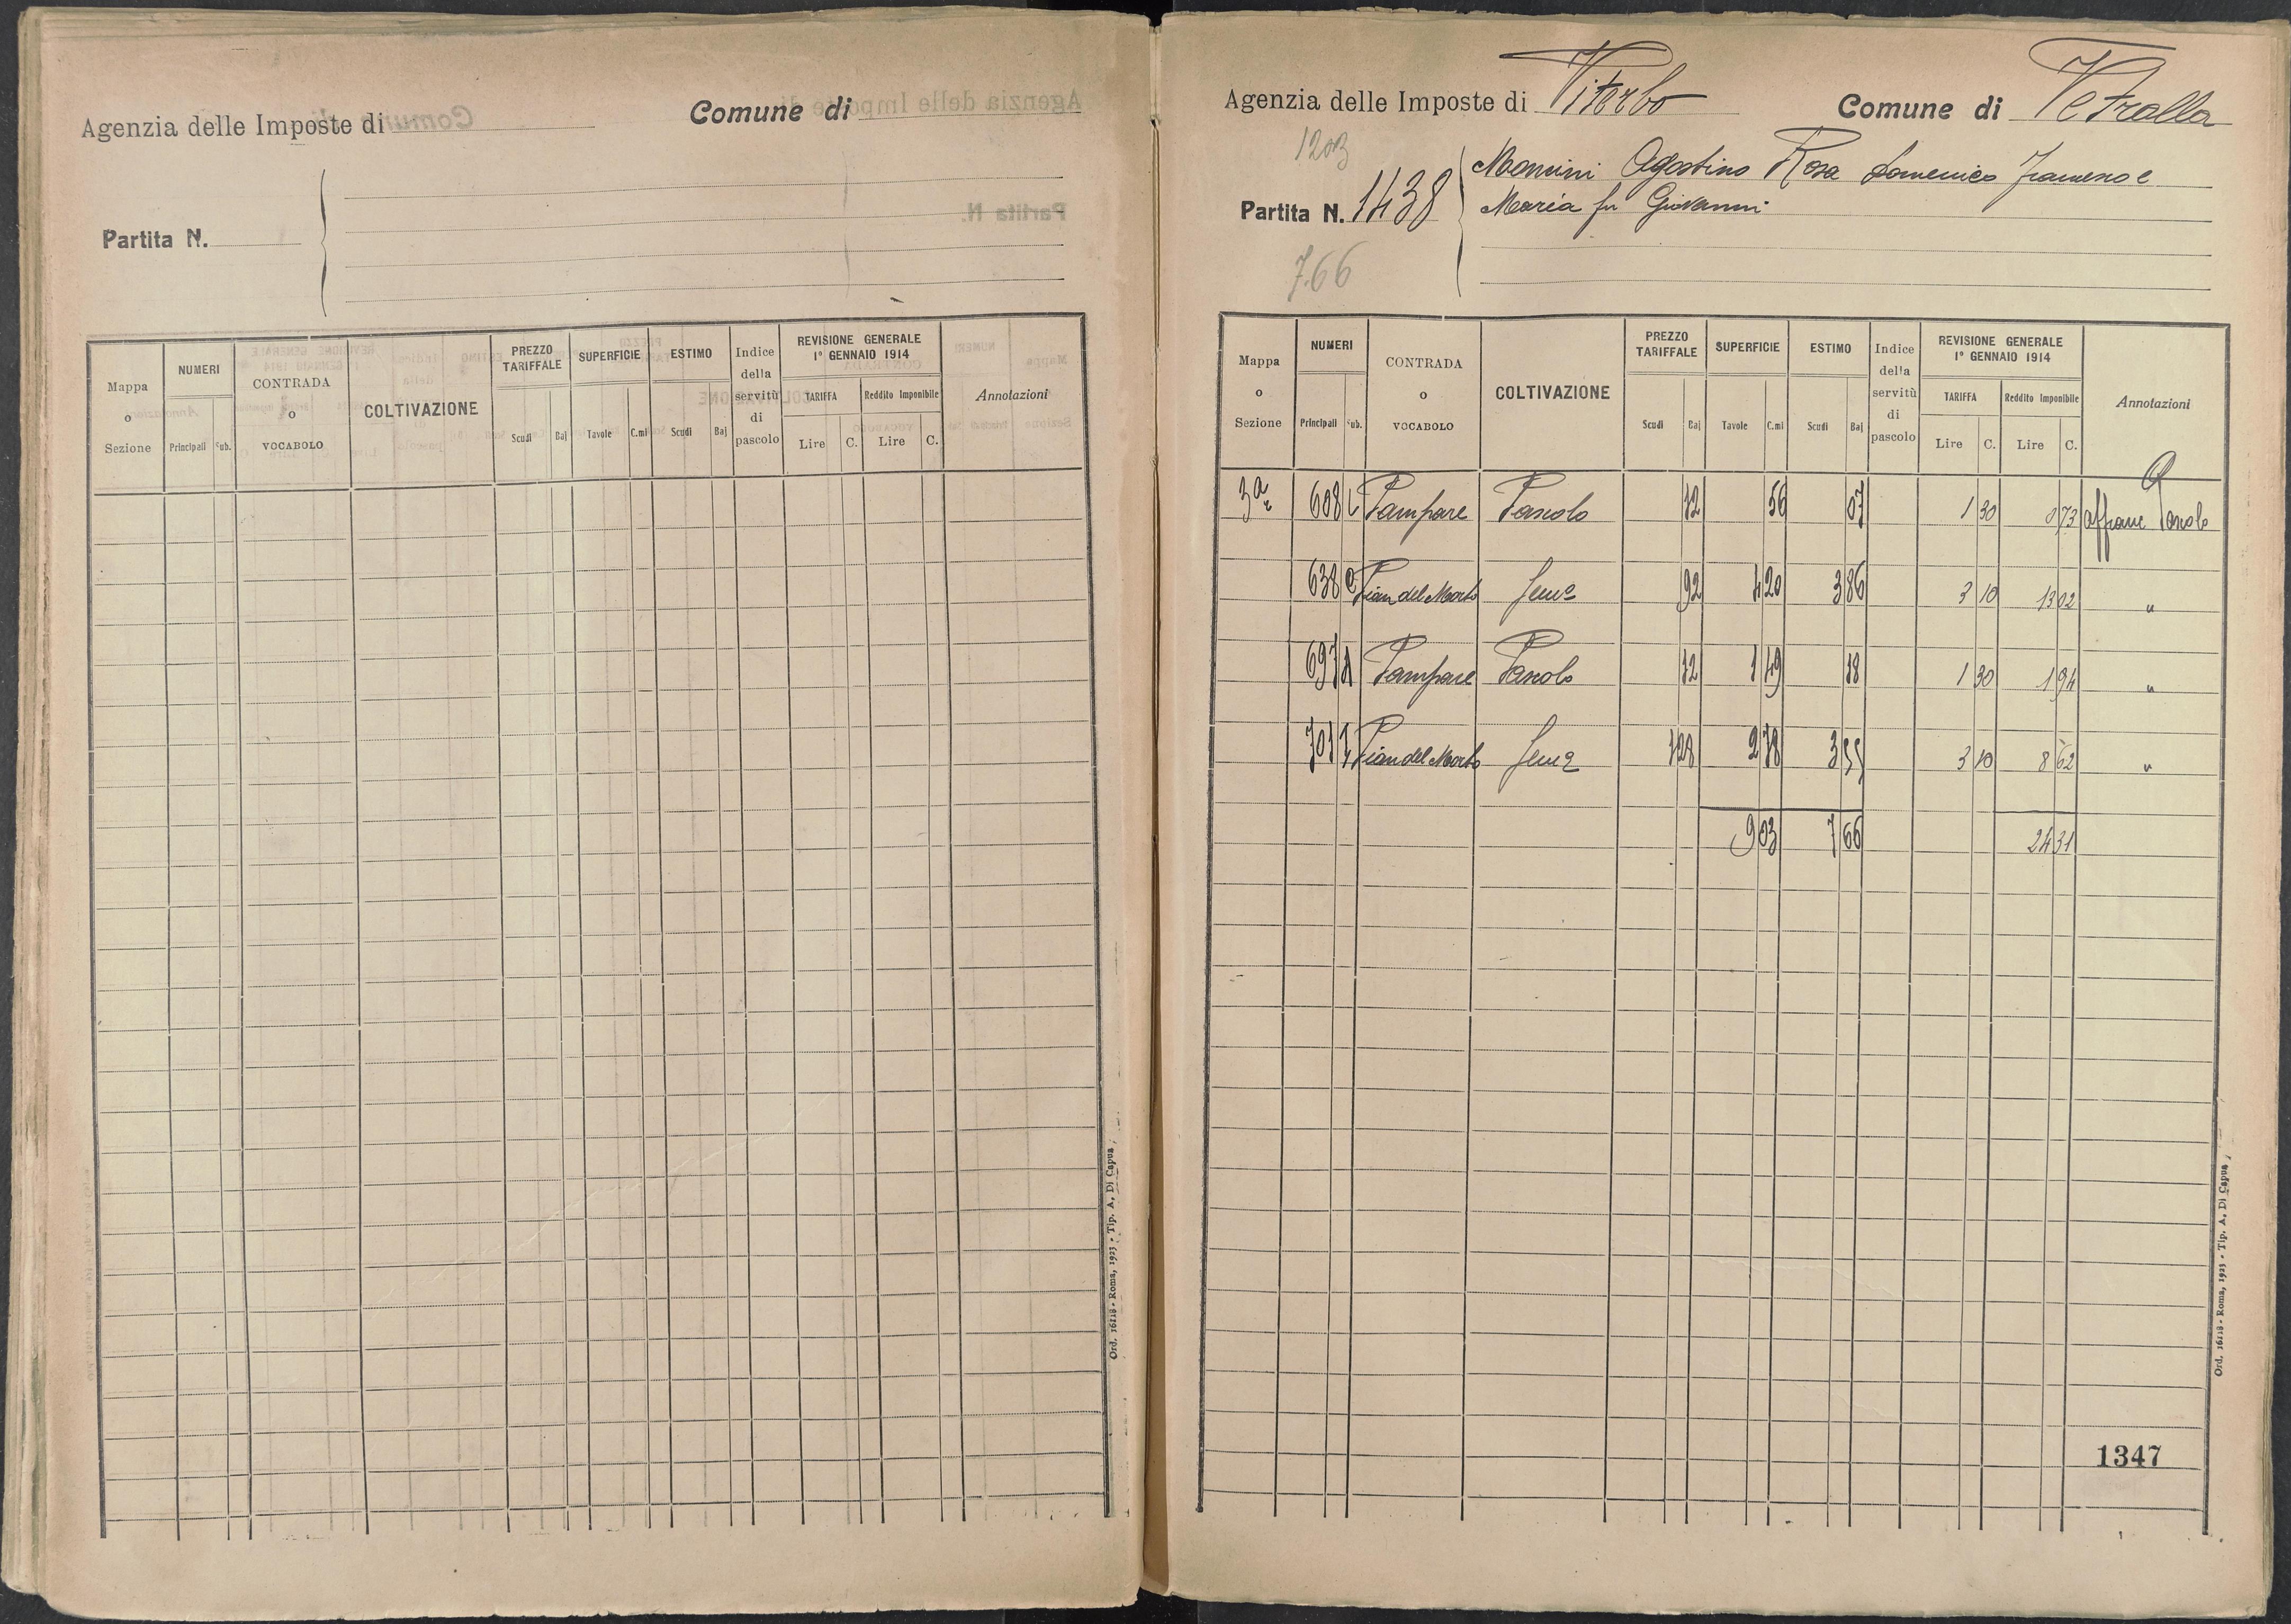 Agenzia delle Imposte di
Comune di
Partita N.
Mappa o Sezione
NUMERI
Principali
Sub.
CONTRADA o VOCABOLO
COLTIVAZIONE
PREZZO TARIFFALE
Scudi
Baj
SUPERFICIE
Tavole
C.mi
ESTIMO
Scudi
Baj
Indice della servitù di pascolo
REVISIONE GENERALE
1° GENNAIO 1914
TARIFFA
Lire C.
Reddito Imponibile
Lire C.
Annotazioni
Ord. 16118 - Roma, 1923 - Tip. A. Di Capua
Agenzia delle Imposte di Viterbo
Comune di Vetralla
1203
Partita N. 1438
Mannini Agostino Rosa Domenico Francesco e
Maria fu Giovanni
7.66
Mappa o Sezione
NUMERI
Principali
Sub.
CONTRADA o VOCABOLO
COLTIVAZIONE
PREZZO TARIFFALE
Scudi
Baj
SUPERFICIE
Tavole
C.mi
ESTIMO
Scudi
Baj
Indice della servitù di pascolo
REVISIONE GENERALE
1° GENNAIO 1914
TARIFFA
Lire C.
Reddito Imponibile
Lire C.
Annotazioni
3a 608 Pampare Pascolo 12 56 07 1 30 0 73 affranc Pascolo
638 Pian del Morto Sem e 92 4 20 3 86 3 10 13 02 "
697 Pampare Pascolo 12 1 49 18 1 30 1 94 "
701 1 Pian del Morto Sem e 1 28 2 78 3 55 3 10 8 62 "
9 03 7 66 24 31
1347
Ord. 16118 - Roma, 1923 - Tip. A. Di Capua